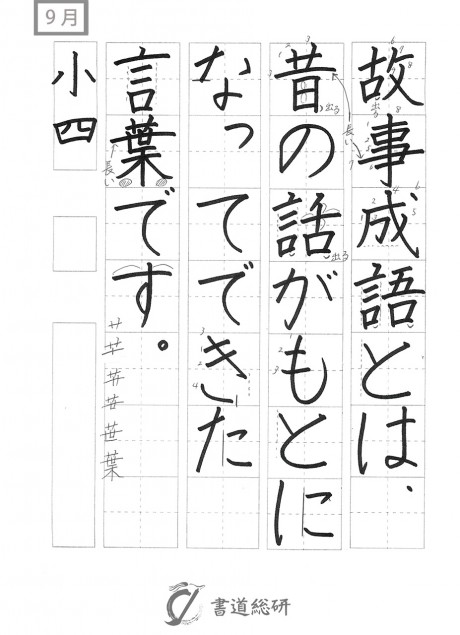 9月
故事成語とは、
昔の話がもとに
なってできた
言葉です。
小四
出る
長い
出る
出る
長い
書道総研